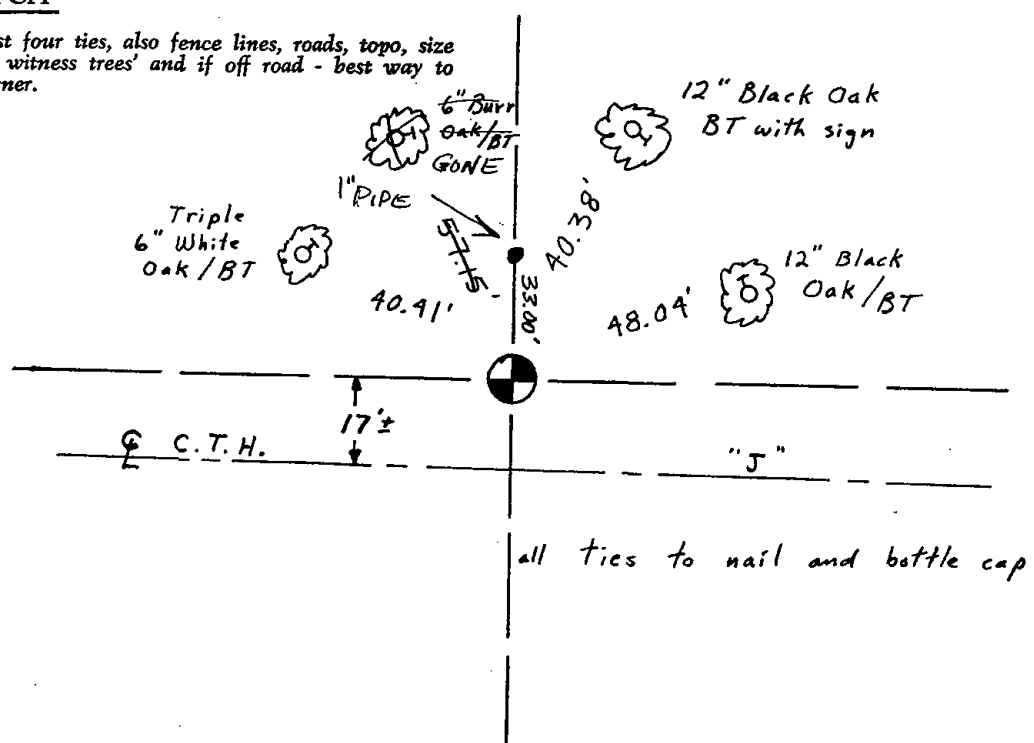 st four ties, also fence lines, roads, topo, size
witness trees' and if off road - best way to
ner.
6" Burr
Oak/BT
GONE
12" Black Oak
BT with sign
1" PIPE
Triple
6" White
Oak/BT
57.15'
40.38'
33.00'
12" Black
Oak/BT
40.41'
48.04'
17'±
℄ C.T.H.
"J"
all ties to nail and bottle cap